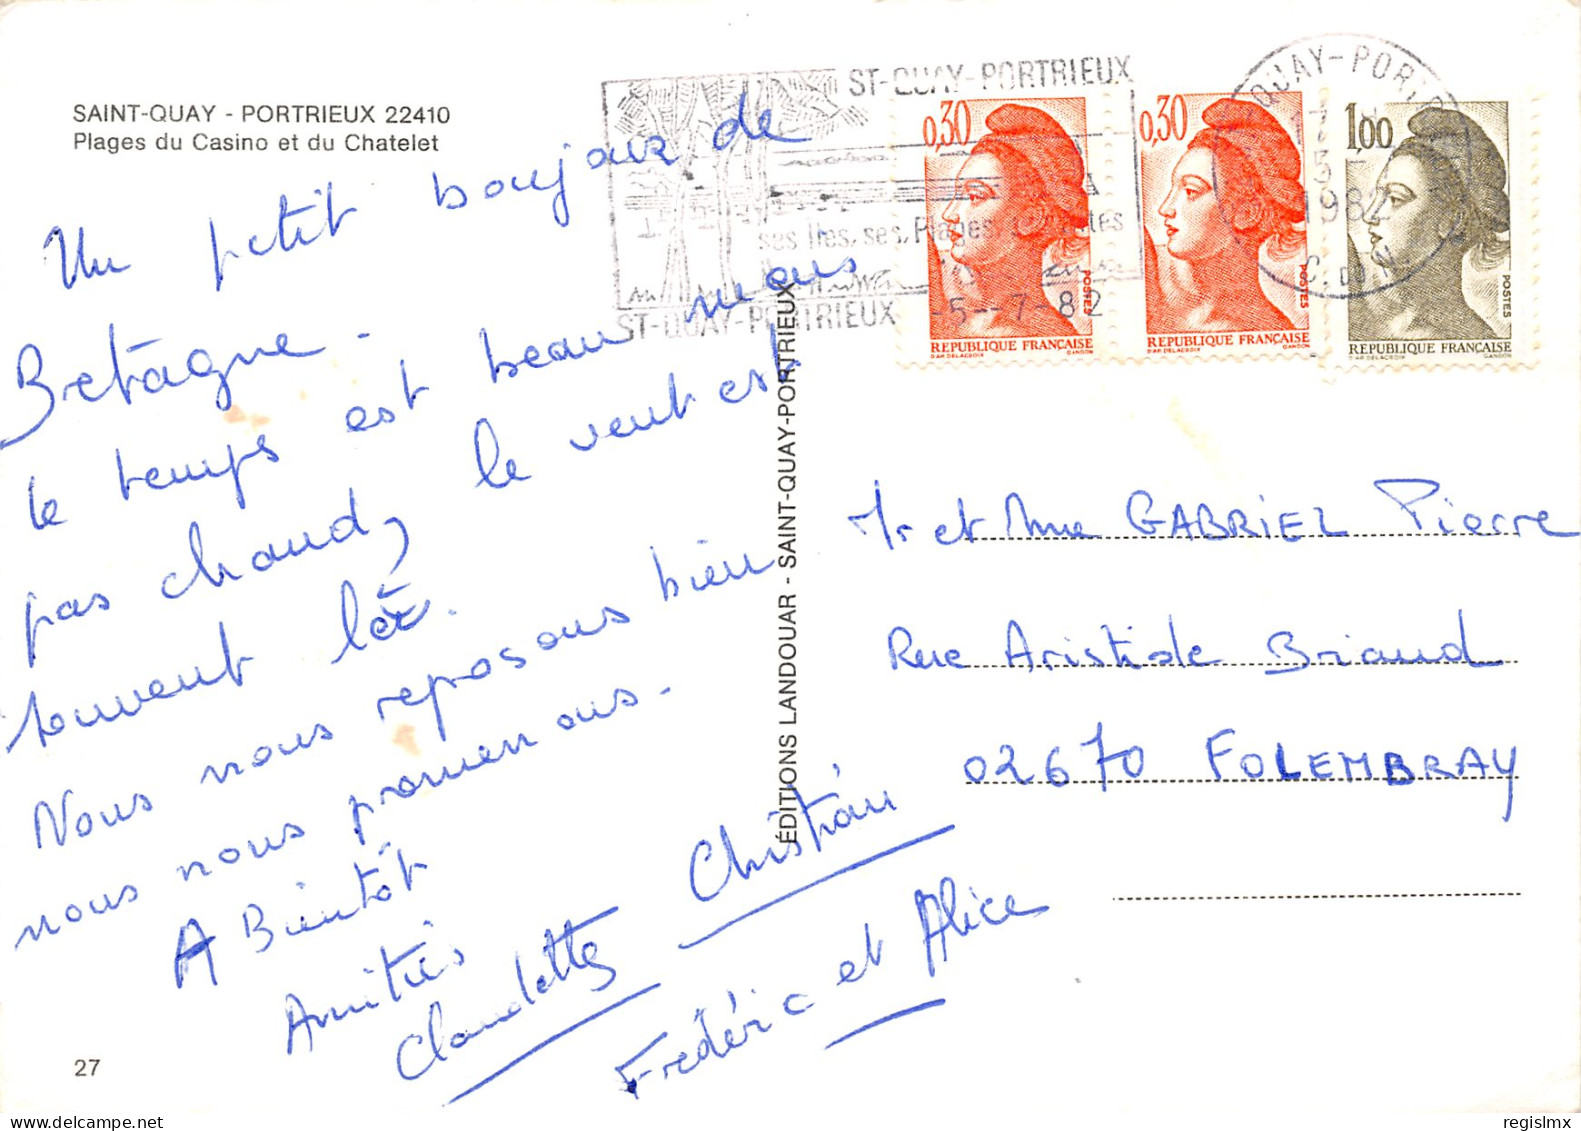 SAINT-QUAY - PORTRIEUX 22410
Plages du Casino et du Chatelet
Un petit boujour de
Bretagne.
le temps est beau mais
pas chaud, le vent est
souvent là.
Nous nous reposons bien
nous nous promenons.
A Bientôt
Amitiés
Claudette Christian
Frédéric et Alice
27
ÉDITIONS LANDOUAR - SAINT-QUAY-PORTRIEUX
ST-QUAY-PORTRIEUX
ses Iles, ses Plages,
ST-QUAY-PORTRIEUX
-5--7-82
QUAY-PORT
17
5-
1982
C. DU N.
0,30
POSTES
REPUBLIQUE FRANÇAISE
D'AP. DELACROIX GANDON
0,30
POSTES
REPUBLIQUE FRANÇAISE
D'AP. DELACROIX GANDON
1,00
POSTES
REPUBLIQUE FRANÇAISE
D'AP. DELACROIX GANDON
Mr et Mme GABRIEL Pierre
Rue Aristide Briand
02670 FOLEMBRAY
regislmx